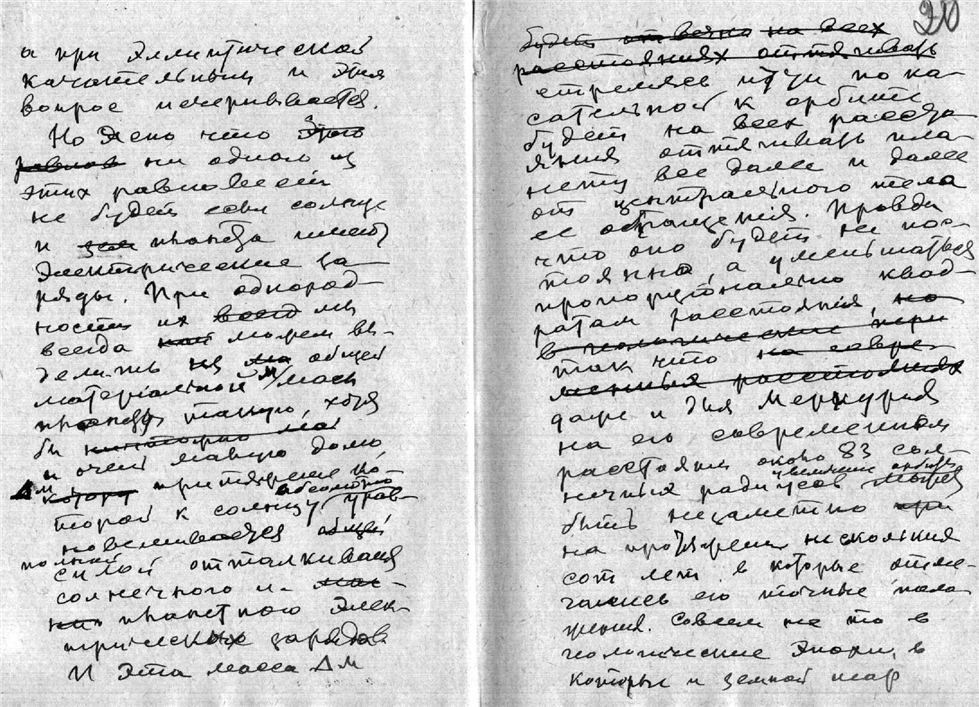 а при эллиптической
качательный и этим
вопрос исчерпывается.
Но ясно что этого
равнов ни одного из
этих равновесий
не будет если солнце
и планета имеют
электрические за-
ряды. При однород-
ности их всегд мы
всегда можем вы-
делить из общей
материальной М массы
планеты такую, хотя
бы
и очень малую долю
Δм которая притяжение ко-
торой к солнцу абсолютно урав-
новешивается общей
полной силой отталкивания
солнечного и
планетного элек-
трических зарядов
И эта масса Δм
20
будет на всех
расстояниях оттягивать
стремясь идти по ка-
сательной к орбите
будет на всех расстоя
яниях оттягивать пла-
нету все далее и далее
от центрального тела
ее обращения. Правда
что оно будет не пос-
тоянно, а уменьшаться
пропорционально квад-
ратам расстояния, но
в геологические пери
так что на совре-
менных расстояниях
даже и для Меркурия
на его современном
расстоянии около 83 сол-
нечных радиусов увеличение орбиты может
быть незаметно при
на протяжении нескольких
сот лет в которые отме-
чались его точные поло-
жения. Совсем не то в
геологические эпохи, в
которые и земной шар